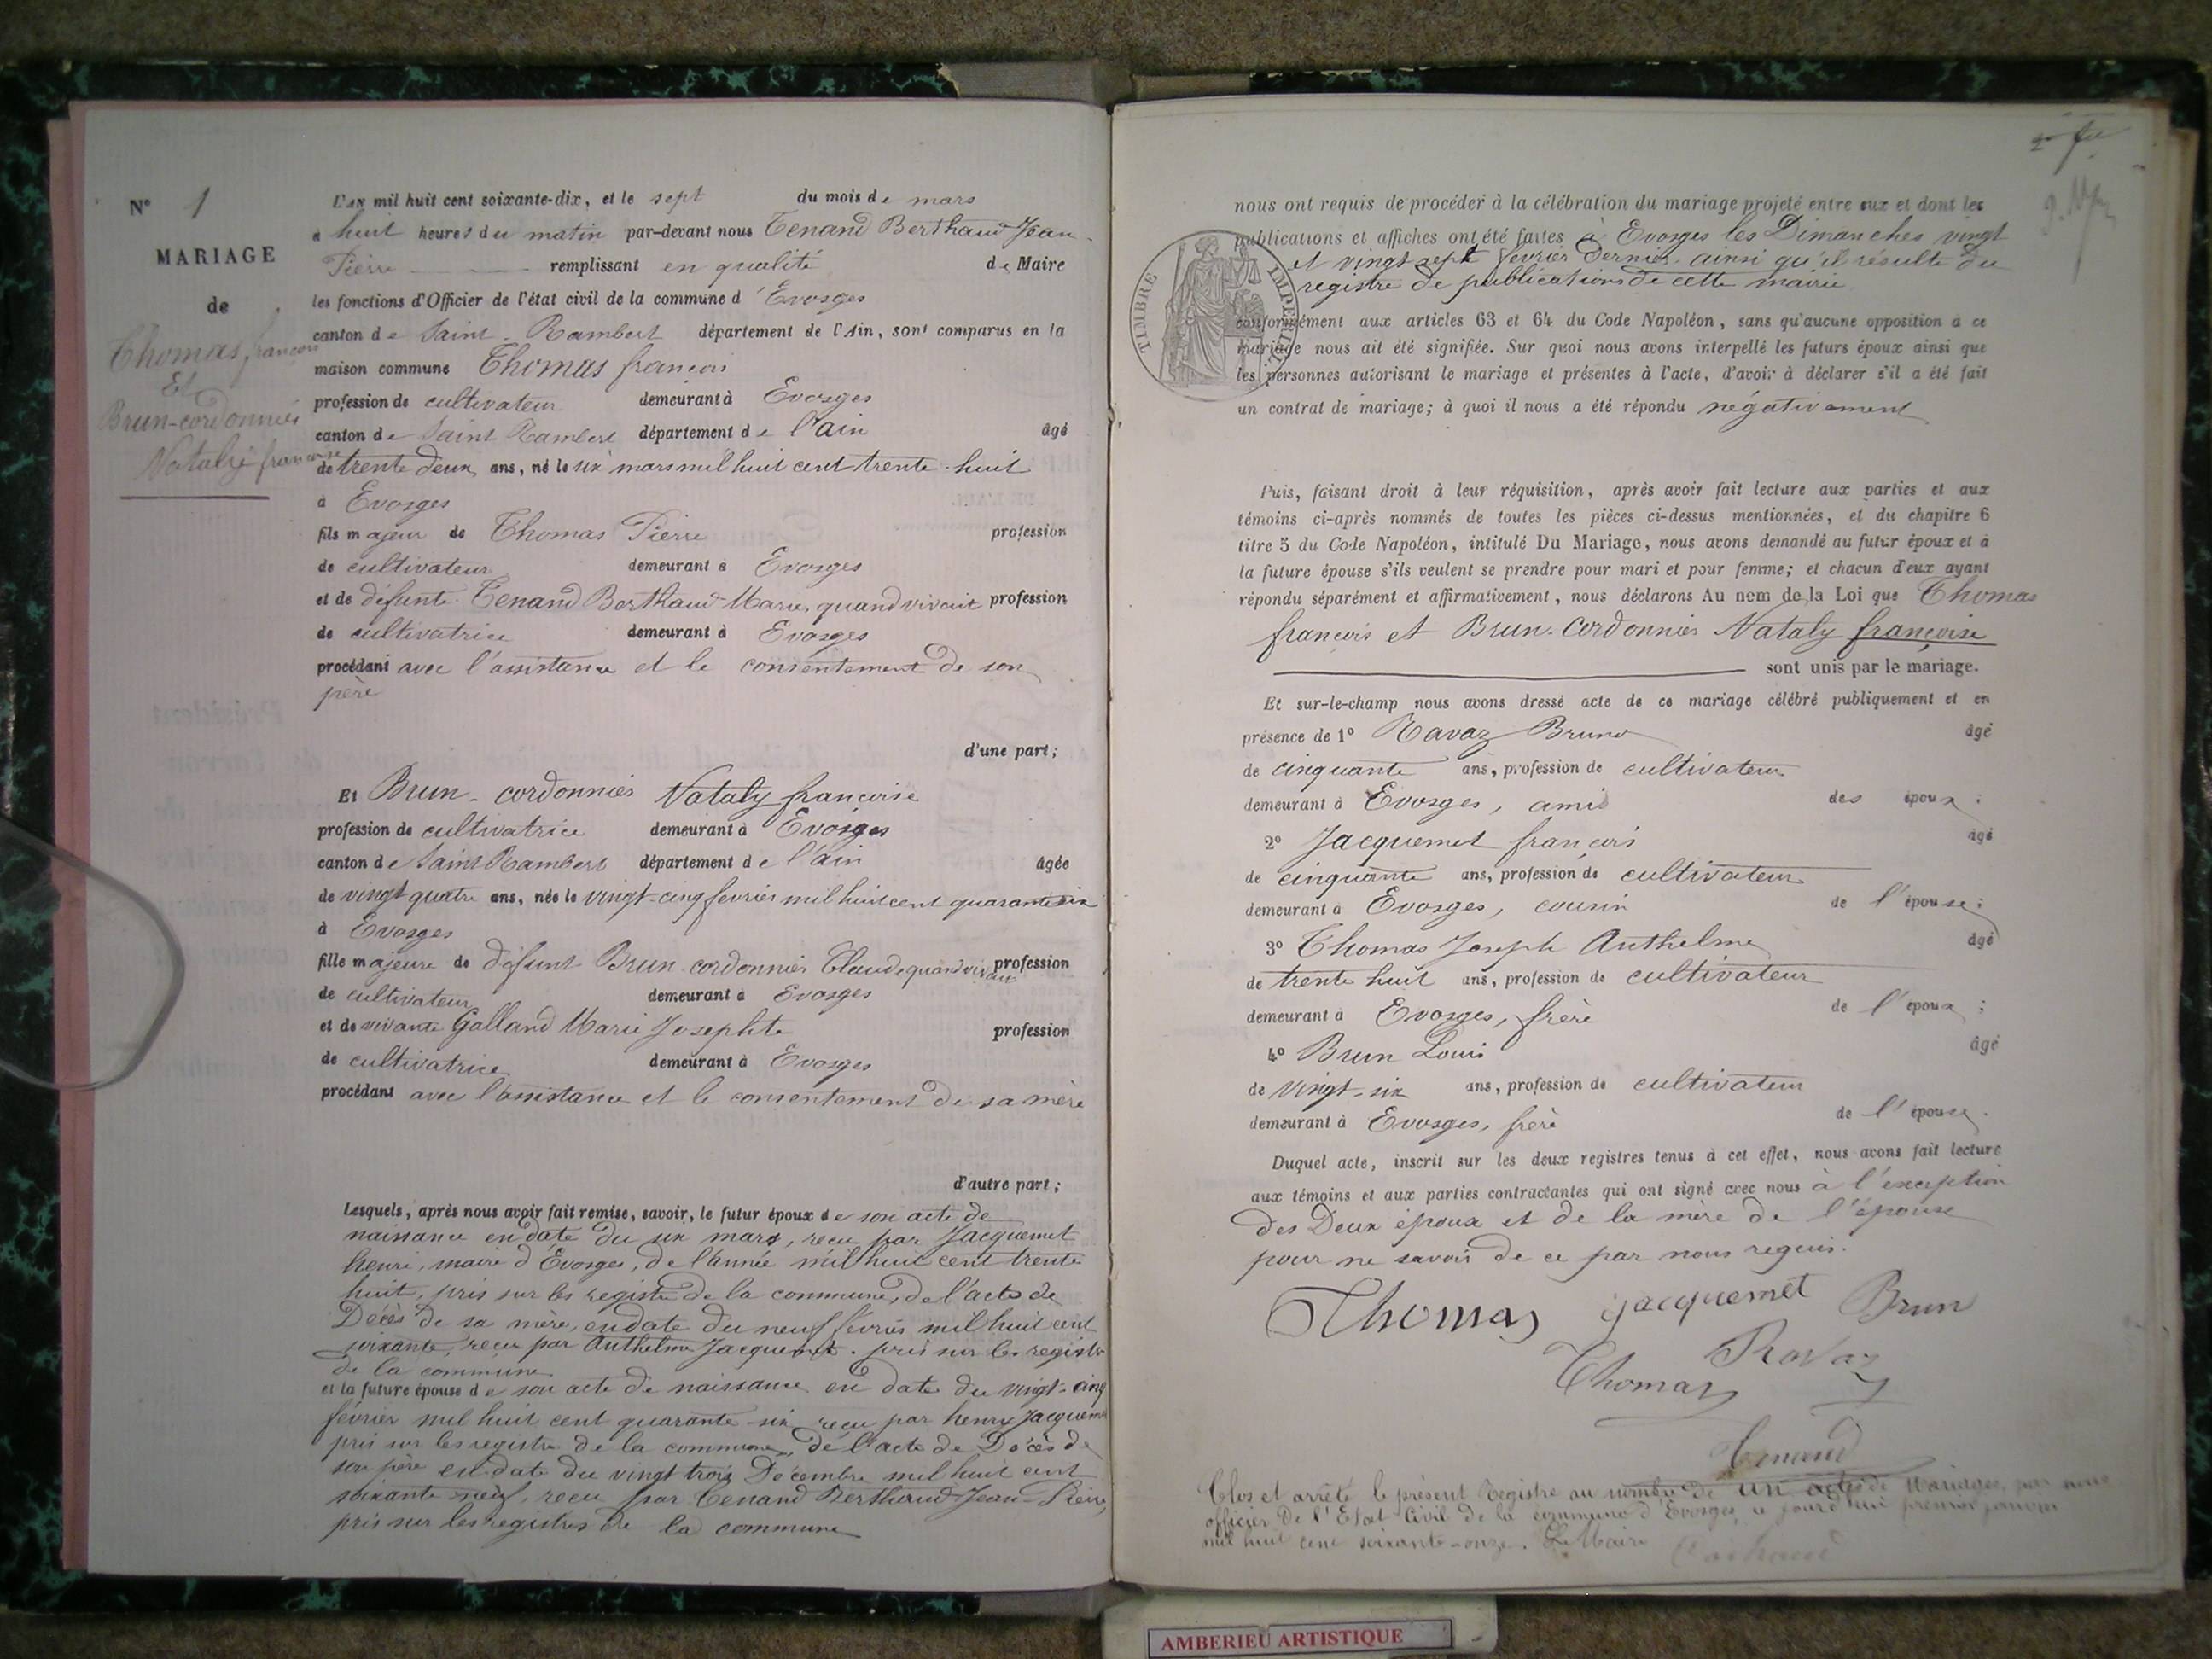 N° 1
MARIAGE
de
Thomas françois
Et
Brun-cordonnier
Nataly françoise
L'AN mil huit cent soixante-dix, et le sept du mois de mars
à huit heures du matin par-devant nous Tenand Berthaud Jean-
Pierre remplissant en qualité de Maire
les fonctions d'Officier de l'état civil de la commune d'Evosges
canton de Saint-Rambert département de l'Ain, sont comparus en la
maison commune Thomas françois
profession de cultivateur demeurant à Evosges
canton de Saint Rambert département de l'ain âgé
de trente deux ans, né le six mars mil huit cent trente-huit
à Evosges
fils majeur de Thomas Pierre profession
de cultivateur demeurant à Evosges
et de défunte Tenand Berthaud Marie, quand vivait profession
de cultivatrice demeurant à Evosges
procédant avec l'assistance et le consentement de son
père
d'une part;
Et Brun-cordonnier Nataly françoise
profession de cultivatrice demeurant à Evosges
canton de Saint Rambert département de l'ain âgée
de vingt quatre ans, née le vingt-cinq fevrier mil huit cent quarante six
à Evosges
fille majeure de défunt Brun cordonnier Claude quand vivait profession
de cultivateur demeurant à Evosges
et de vivante Galland Marie Josephte profession
de cultivatrice demeurant à Evosges
procédant avec l'assistance et le consentement de sa mère
d'autre part;
Lesquels, après nous avoir fait remise, savoir, le futur époux de son acte de
naissance en date du six mars, reçu par Jacquemet
henri, maire d'Evosges, de l'année mil huit cent trente
huit, pris sur les registre de la commune, de l'acte de
Décès de sa mère, en date du neuf février mil huit cent
soixante, reçu par Anthelme Jacquemet. pris sur les registre
de la commune
et la future épouse de son acte de naissance en date du vingt-cinq
février mil huit cent quarante-six reçu par henry Jacquemet
pris sur les registre de la commune, de l'acte de Décès de
son père en date du vingt trois Décembre mil huit cent
soixante-neuf, reçu par Tenand Berthaud Jean-Pierre,
pris sur les registres de la commune
nous ont requis de procéder à la célébration du mariage projeté entre eux et dont les
publications et affiches ont été faites à Evosges les Dimanches vingt
et vingt sept fevrier dernier ainsi qu'il résulte du
registre de publications de cette mairie
TIMBRE IMPERIAL
conformément aux articles 63 et 64 du Code Napoléon, sans qu'aucune opposition à ce
mariage nous ait été signifiée. Sur quoi nous avons interpellé les futurs époux ainsi que
les personnes autorisant le mariage et présentes à l'acte, d'avoir à déclarer s'il a été fait
un contrat de mariage; à quoi il nous a été répondu négativement
Puis, faisant droit à leur réquisition, après avoir fait lecture aux parties et aux
témoins ci-après nommés de toutes les pièces ci-dessus mentionnées, et du chapitre 6
titre 5 du Code Napoléon, intitulé Du Mariage, nous avons demandé au futur époux et à
la future épouse s'ils veulent se prendre pour mari et pour femme; et chacun d'eux ayant
répondu séparément et affirmativement, nous déclarons Au nom de la Loi que Thomas
françois et Brun-Cordonnier Nataly françoise
sont unis par le mariage.
Et sur-le-champ nous avons dressé acte de ce mariage célébré publiquement et en
présence de 1° Ravaz Bruno âgé
de cinquante ans, profession de cultivateur
demeurant à Evosges, ami des époux;
2° Jacquemet françois âgé
de cinquante ans, profession de cultivateur
demeurant à Evosges, cousin de l'épouse;
3° Thomas Joseph Anthelme âgé
de trente huit ans, profession de cultivateur
demeurant à Evosges, frère de l'époux;
4° Brun Louis âgé
de vingt-six ans, profession de cultivateur
demeurant à Evosges, frère de l'épouse.
Duquel acte, inscrit sur les deux registres tenus à cet effet, nous avons fait lecture
aux témoins et aux parties contractantes qui ont signé avec nous à l'exception
des Deux époux et de la mère de l'épouse
pour ne savoir de ce par nous requis.
Thomas Jacquemet Brun
Thomas Ravaz
Tenand
Clos et arrêté le présent Registre au nombre de un acte de Mariages, par nous
officier De l'Etat Civil de la commune d'Evosges, ce jourd'hui premier janvier
mil huit cent soixante-onze. Le Maire
AMBERIEU ARTISTIQUE